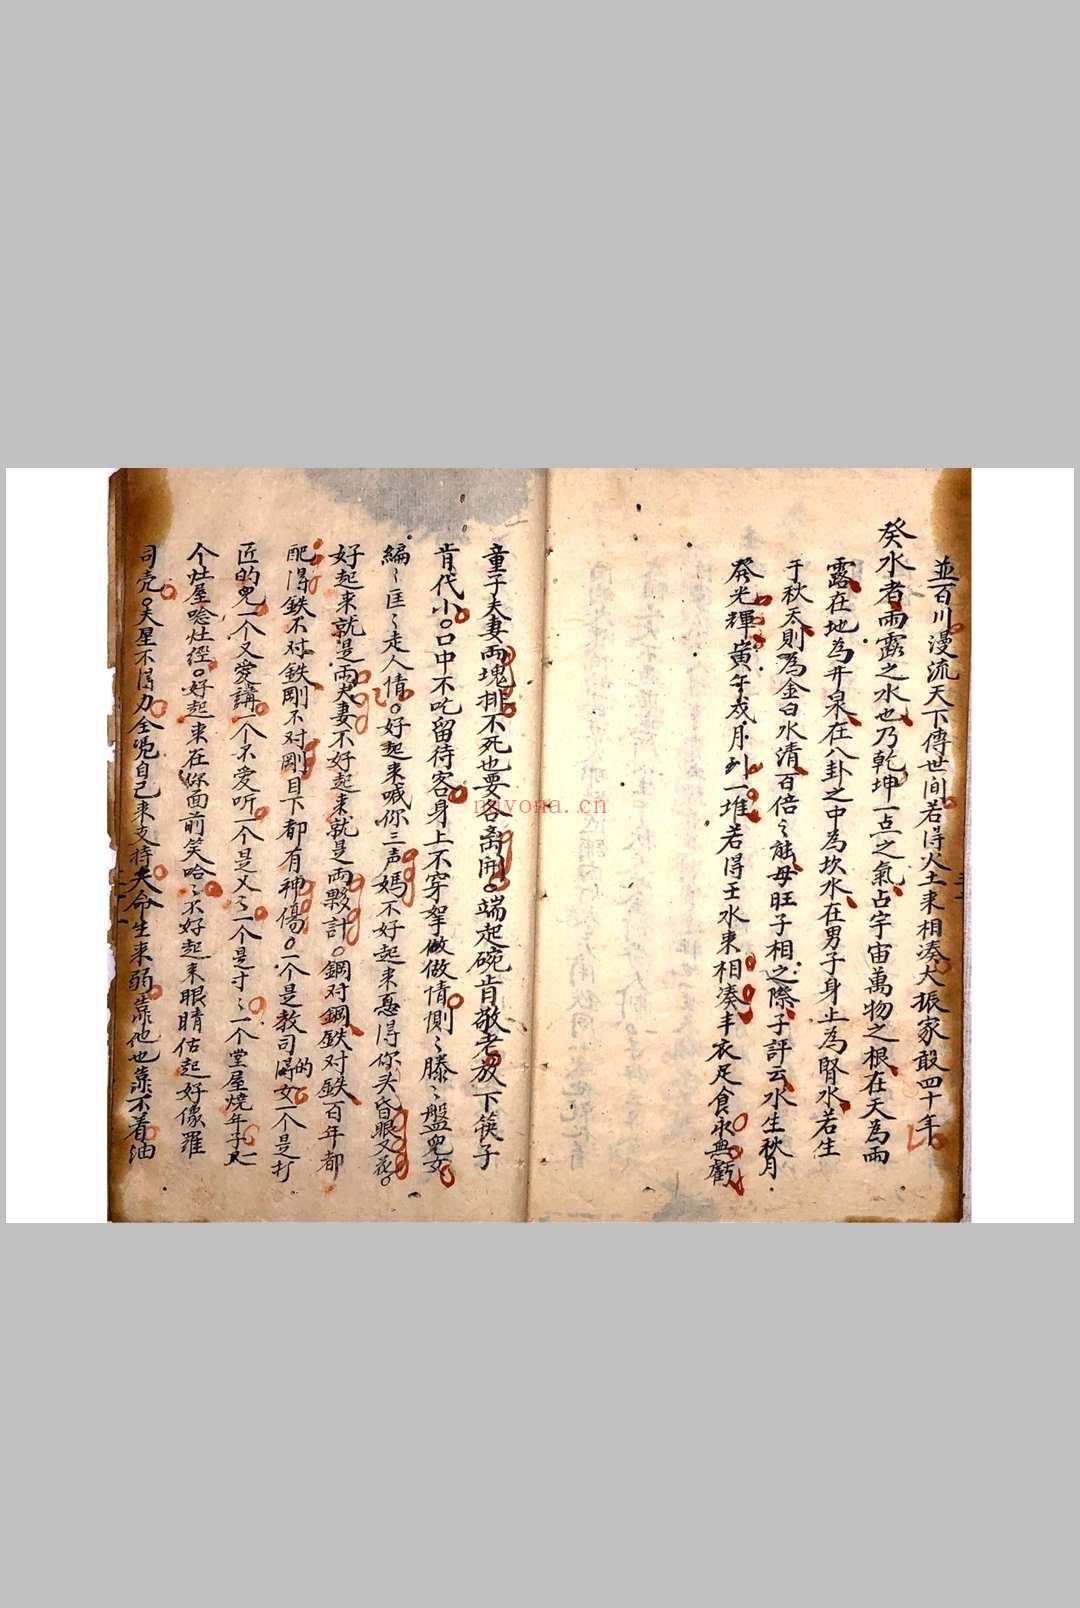 並百川漫流天下傳世间若得火土来相凑大振家敢四十年
癸水者雨露之水也乃乾坤一点之氣占宇宙萬物之根在天為雨
露在地為井泉在八卦之中為坎水在男子身上為腎水若生
于秋天則為金白水清百倍〻能母旺子相之際子評云水生秋月
癸光輝寅午戍月列一堆若得壬水来相凑丰衣足食永無虧
童子夫妻兩塊排不死也要各离开。端起碗肯敬老放下筷子
肯代小。口中不吃留待客身上不穿拏做做情惻〻滕〻盤兒女
編〻匡〻走人情。好起来喊你三声媽不好起来惪得你头昏眼又花。
好起来就是兩夫妻不好起来就是兩夥計。鋼对鋼鉄对鉄百年都
配得鉄不对鉄剛不对剛目下都有神傷。一个是教司得的女一个是打
匠的兒一个又爱講一个不爱听一个是乂〻一个是寸〻一个堂屋燒年子一
个灶屋唸灶經。好起来在你面前笑哈〻不好起来眼睛估起好像羅
司売。夫星不得力全凴自己来支持夫命生来弱靠他也靠不着油
nuyona.cn